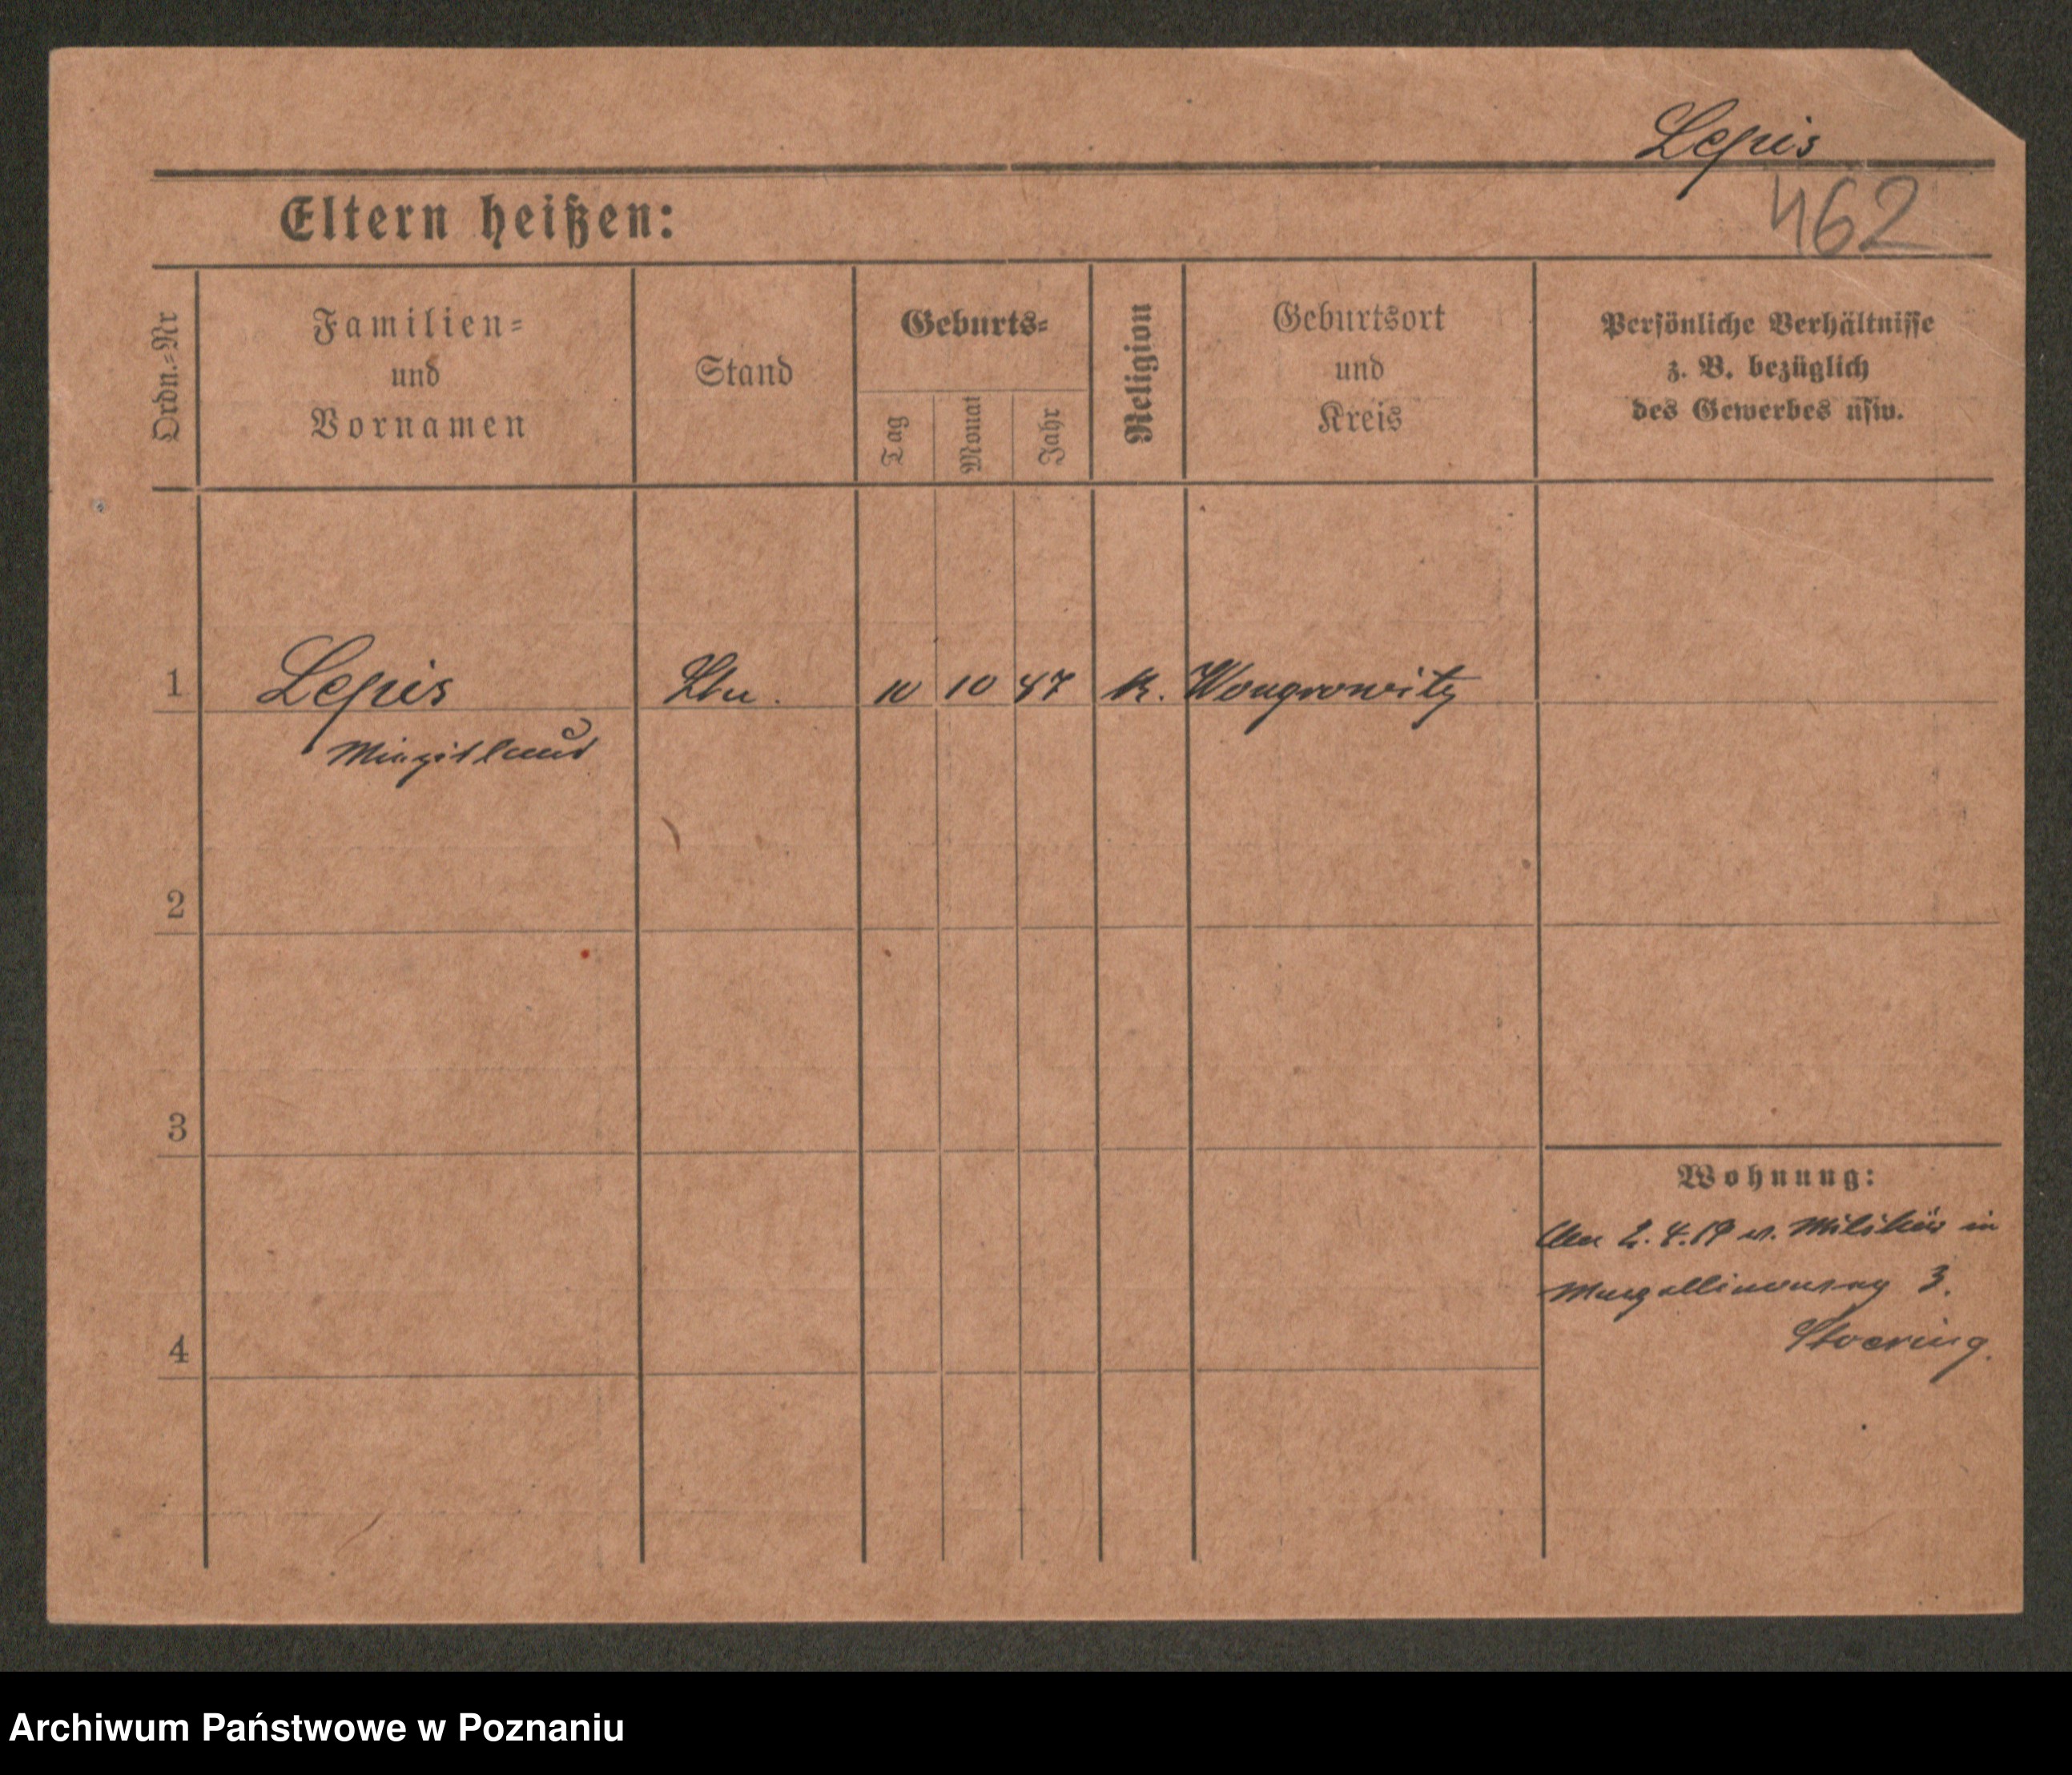 Lepis
462
Eltern heißen:
Ordn.=Nr
Familien=
und
Vornamen
Stand
Geburts=
Tag
Monat
Jahr
Religion
Geburtsort
und
Kreis
Persönliche Verhältnisse
z. B. bezüglich
des Gewerbes usw.
1 Lepis 10 10 47 K. Wongrowitz
2
3
Wohnung:
v. Militär in
3.
4
Archiwum Państwowe w Poznaniu